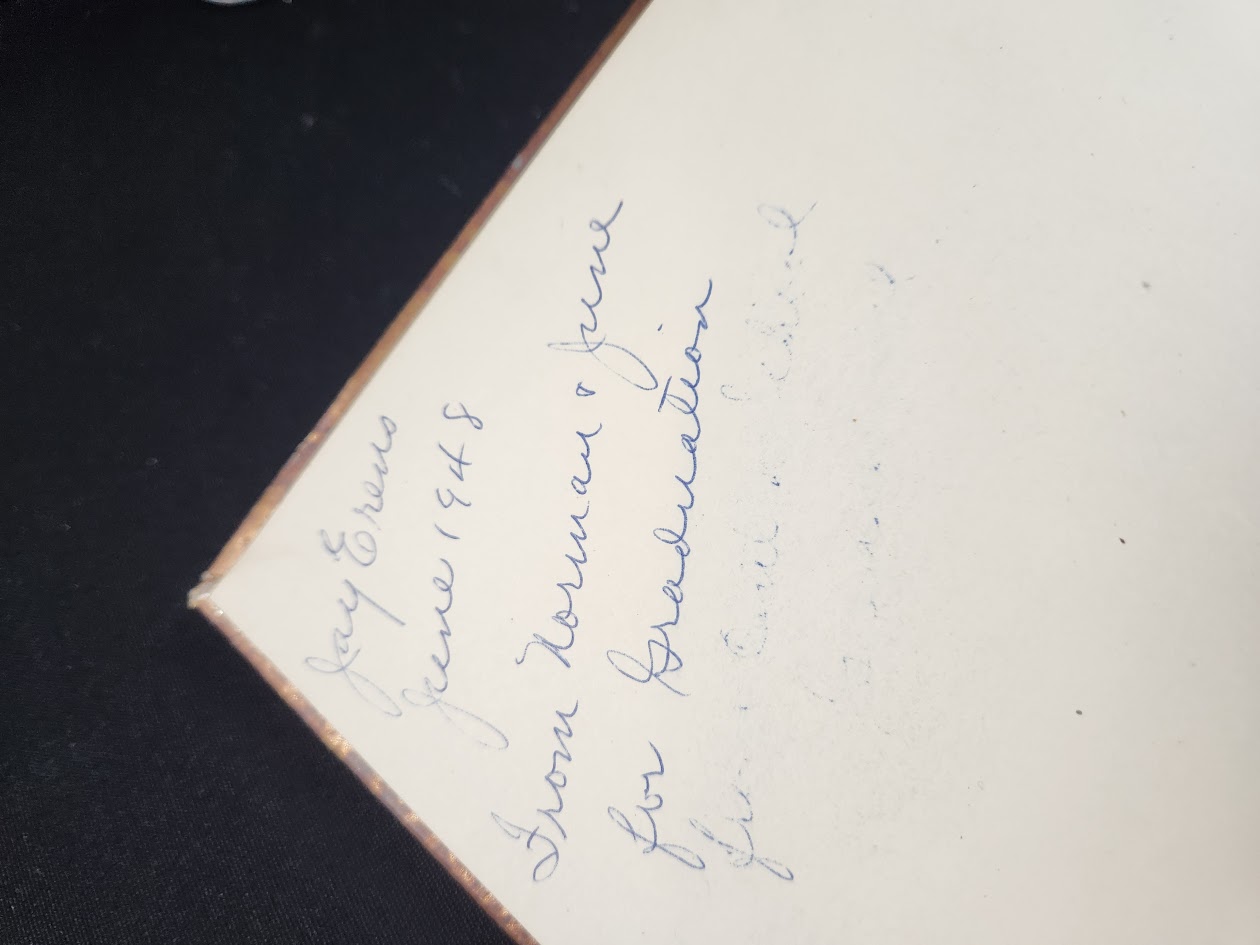 Jay Erens
June 1948
From Norman & June
for Graduation
from